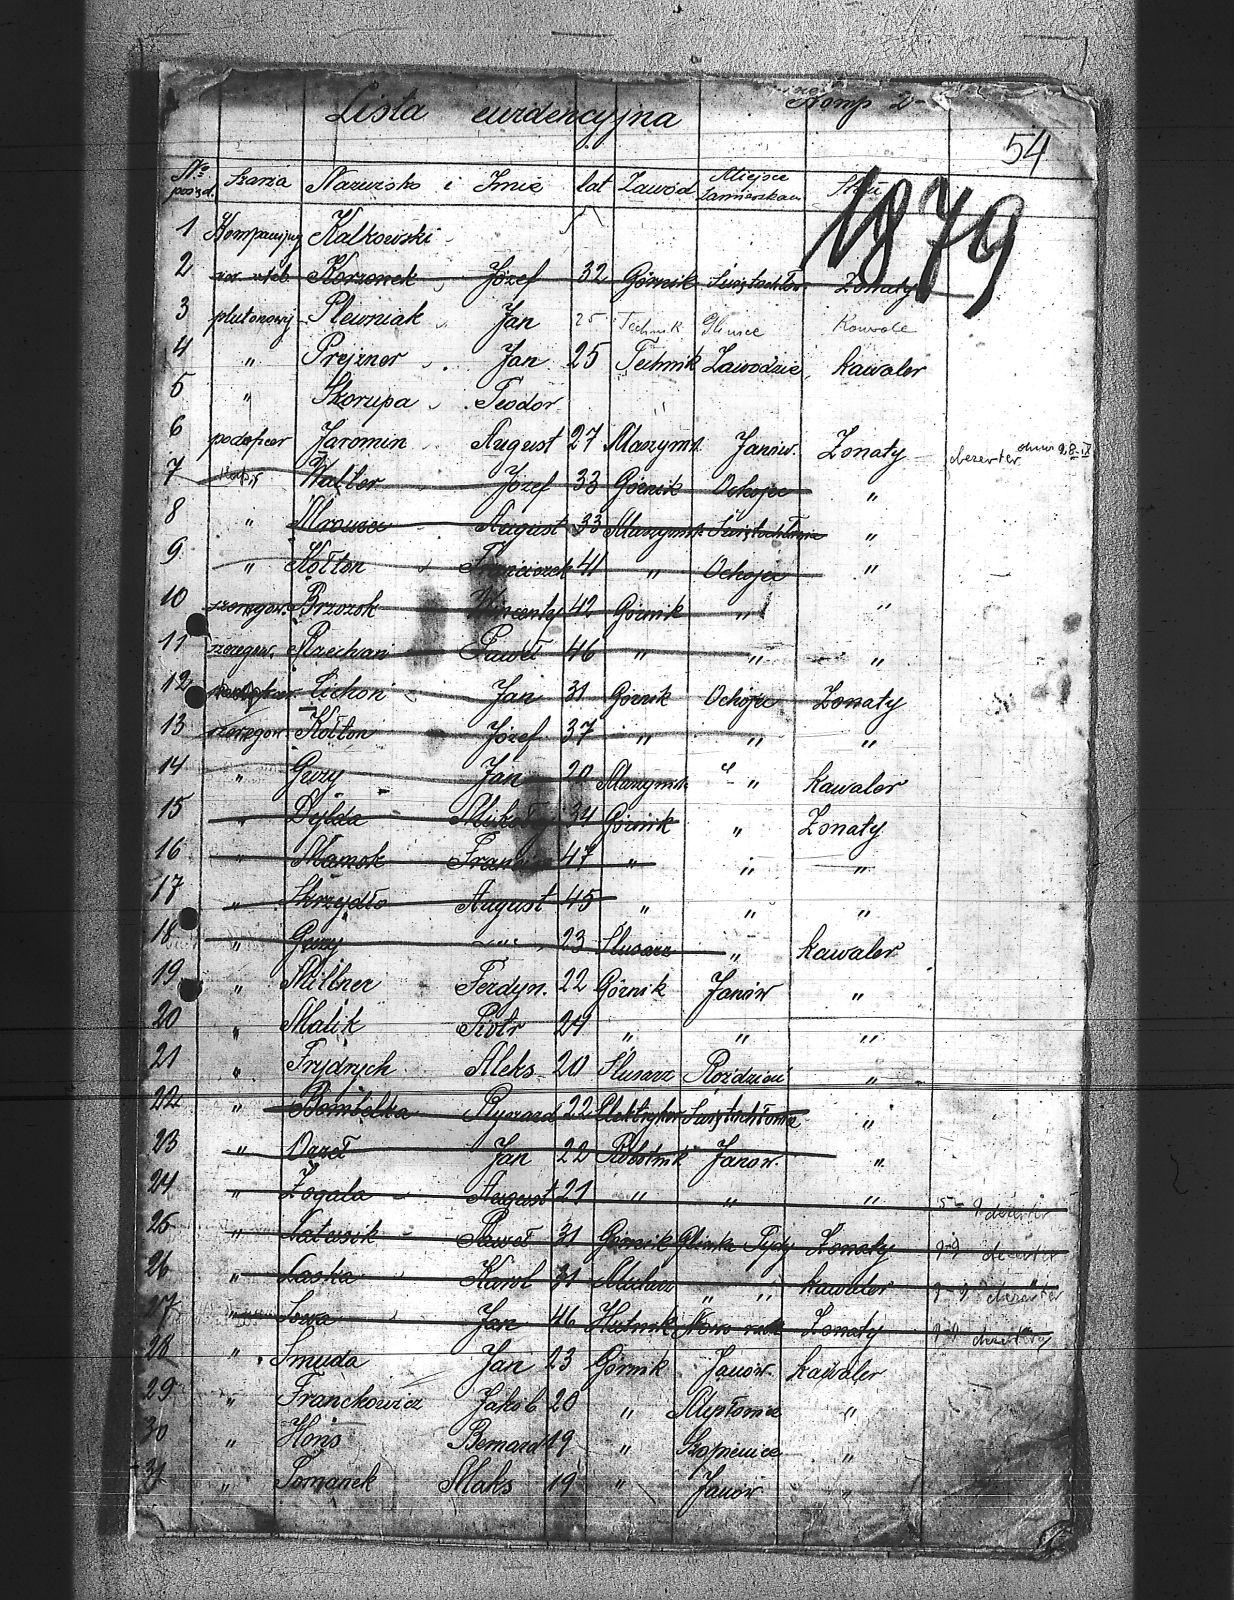 Lista ewidencyjna Komp 2
54
No porząd. Szarża Nazwisko i Imię lat Zawód Miejsce zamieszkan Stan
1879
1 Kompanijny Kalkowski
2 Korzonek Józef 32 Górnik Świętochłow Żonaty
3 plutonowy Plewniak Jan 25 Technik Gliwice Kawale
4 " Prejzner Jan 25 Technik Zawodzie kawaler
5 " Skorupa Teodor
6 podoficer Jaromin August 27 Maszynis. Janów. Żonaty dezerter dnia 28-IX
7 Kapr Walter Józef 33 Górnik Ochojec "
8 " August 33 Maszynis Świętochłowice "
9 " Kołton Franciszek 41 " Ochojec "
10 szeregow. Brzozok Wincenty 42 Górnik " "
11 szeregow. Paweł 46 " " "
12 Cichoń Jan 31 Górnik Ochojec Żonaty
13 szeregow. Kołton Józef 37 " " "
14 " Jan 20 Maszynis " kawaler
15 " Dylda Mikołaj 34 Górnik " Żonaty
16 " Mamok 47 " " "
17 " Skrzydło August 45 " " "
18 " 23 Ślusarz " kawaler
19 " Millner Ferdyn. 22 Górnik Janów "
20 " Malik Piotr 24 " " "
21 " Frydrych Aleks 20 Ślusarz Roździeń "
22 " Bombelka Ryszard 22 Elektryker Świętochłowice "
23 " Orzeł Jan 22 Robotnik Janów. "
24 " Zogala August 21 " " " dezerter
25 " Paweł 31 Górnik Żonaty 9-9 dezerter
26 " Laska Karol 31 " " kawaler 9-9 dezerter
27 " Sowa Jan 46 Hutnik Żonaty 9-9
28 " Smuda Jan 23 Górnik Janów. kawaler
29 " Franckowicz Jakób 20 " Mysłowice "
30 " Bernard 19 " Szopienice "
31 " Pomanek Maks 19 " Janów "